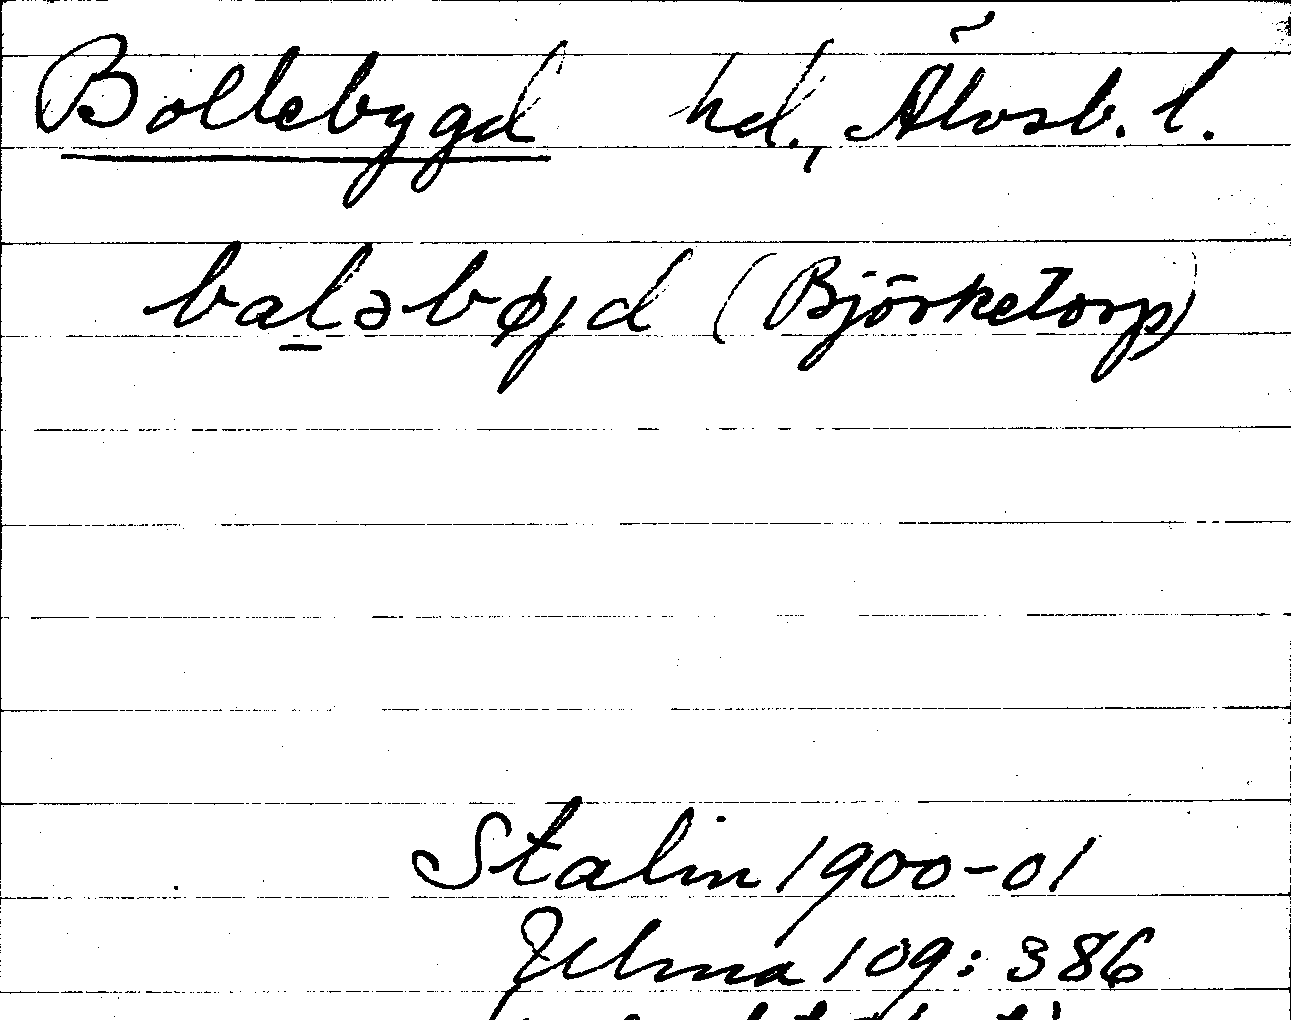 Bollebygd hd., Älvsb. l.
baləbøjd (Björketorp)
Stalin 1900-01
Ulma 109:386